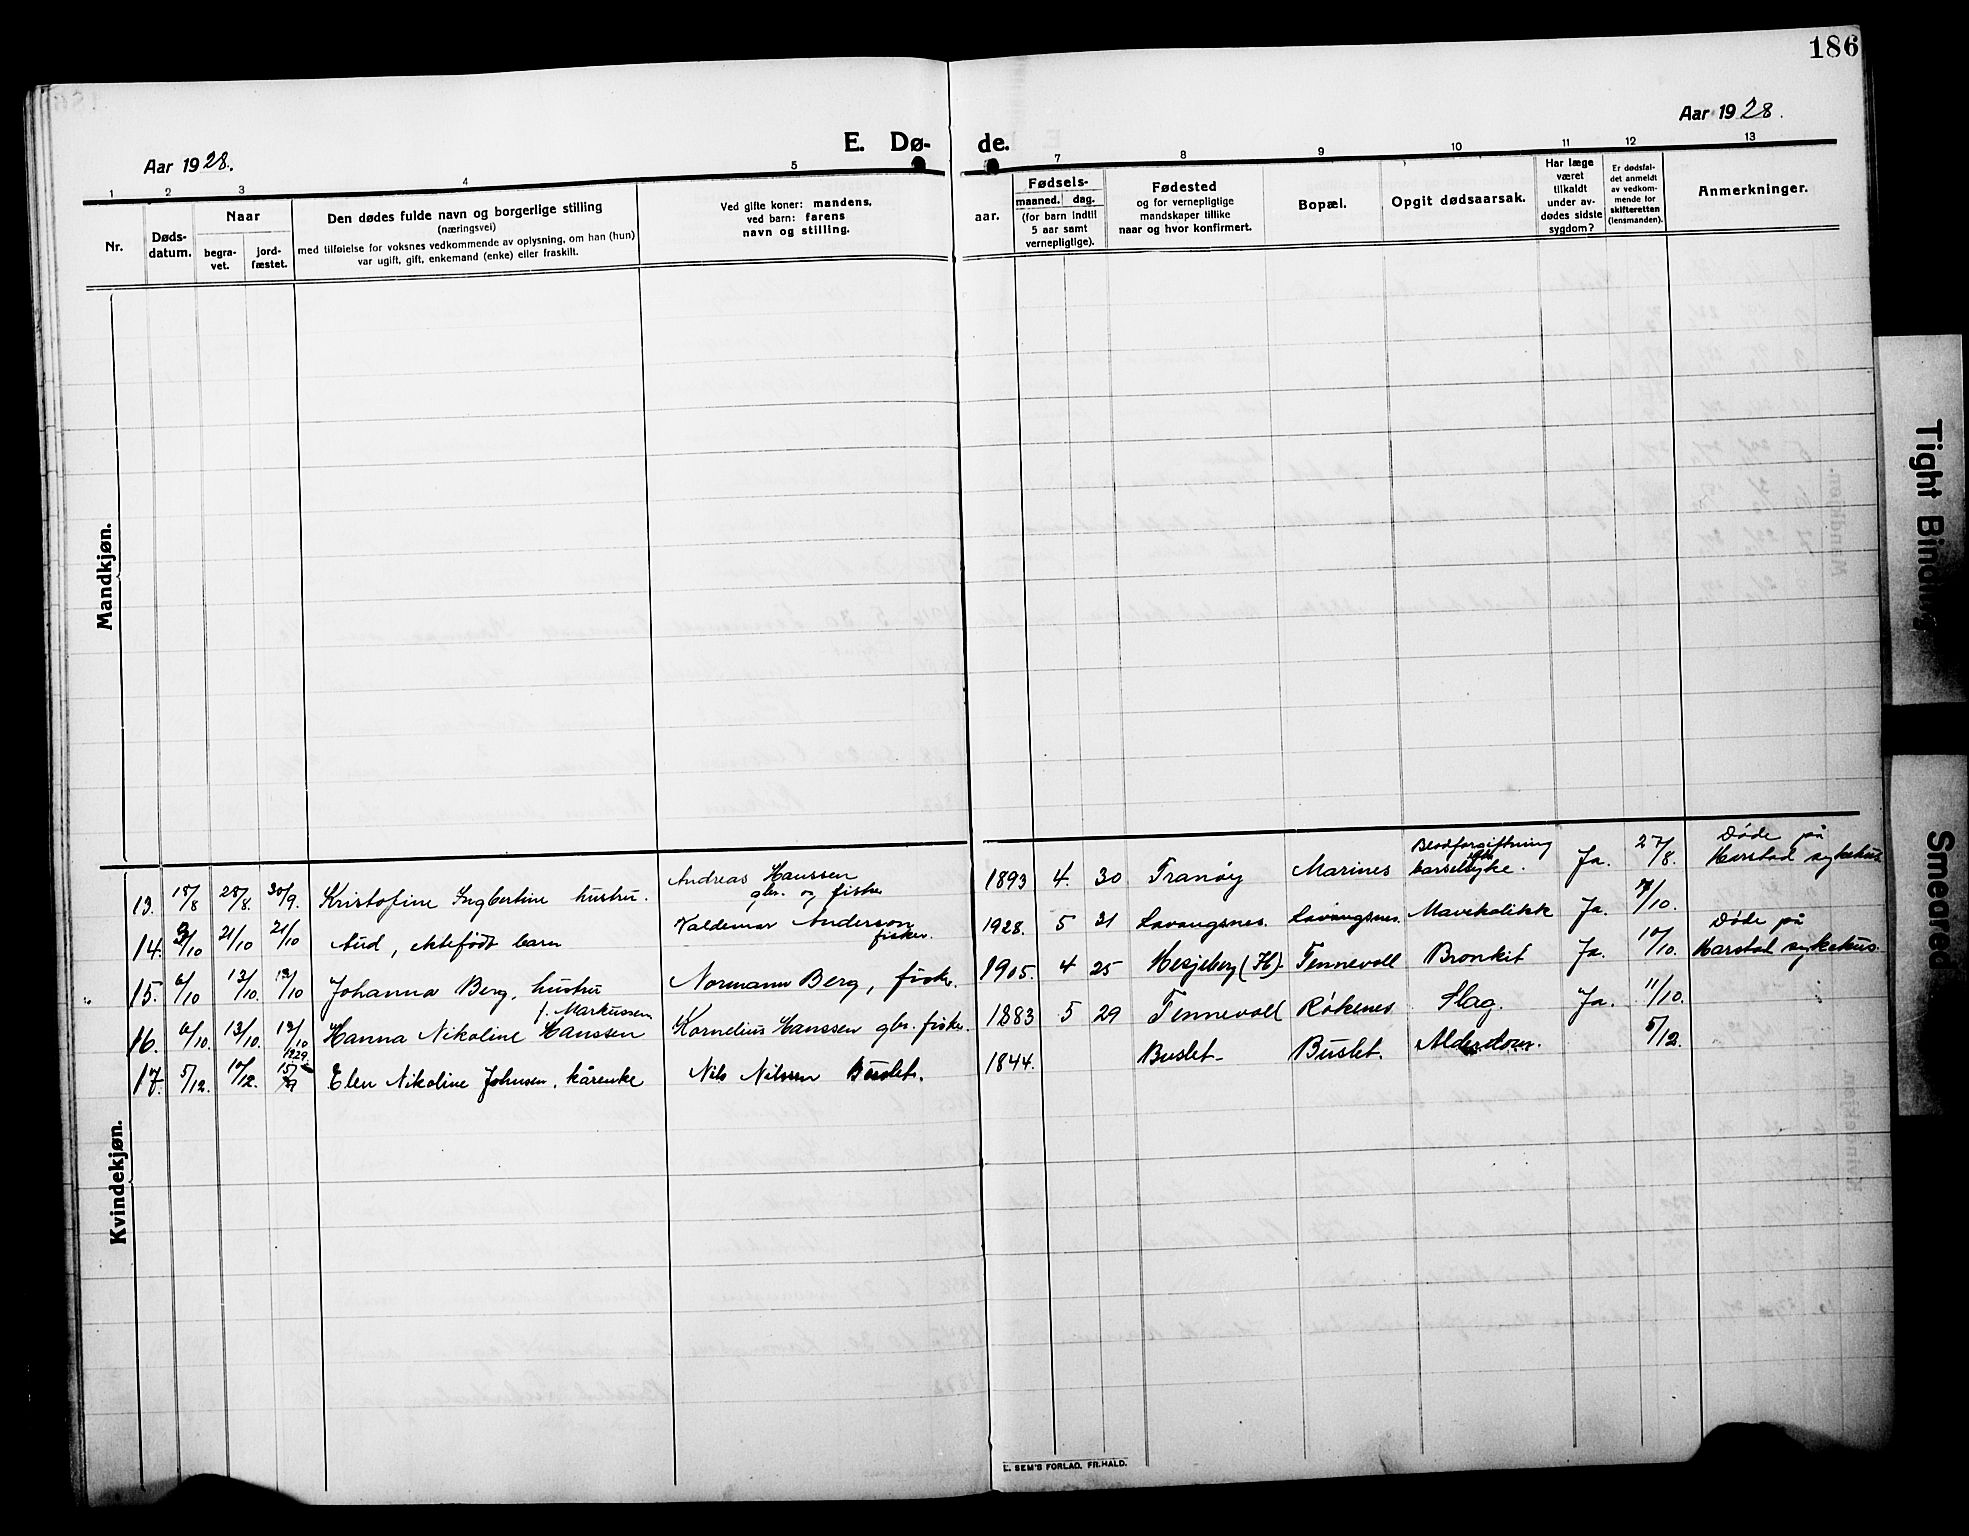 186
Aar 1928.
Aar 1928.
E. Dø- de.
1 2 3 4 5 7 8 9 10 11 12 13
Nr.
Døds-
datum.
Naar
begra-
vet.
jord-
fæstet.
Den dødes fulde navn og borgerlige stilling
(næringsvei)
med tilføielse for voksnes vedkommende av oplysning, om han (hun)
var ugift, gift, enkemand (enke) eller fraskilt.
Ved gifte koner: mandens,
ved barn: farens
navn og stilling.
aar.
Fødsels-
maaned. dag.
(for barn indtil
5 aar samt
vernepligtige).
Fødested
og for vernepligtige
mandskaper tillike
naar og hvor konfirmert.
Bopæl.
Opgit dødsaarsak.
Har læge
været
tilkaldt
under av-
dødes sidste
sygdom?
Er dødsfal-
det anmeldt
av vedkom-
mende for
skifteretten
(lensmanden).
Anmerkninger.
Mandkjøn.
Kvindekjøn.
13. 18/8 28/8. 30/9. Kristofine Ingbertine hustru. Andreas Hanssen gbr. og fisker 1893 4. 30 Tranøy Marines Blodforgiftning barselsyke. Ja. 27/8. Døde på Harstad sykehus
14. 21/10 21/10 Aud, ektefødt barn Valdemar Anderson fisker. 1928. 5 21 Lavangsnes. Lavangsnes. Mavekolikk Ja. /10.
15. 6/10 13/10. 13/10 Johanna Berg, hustru f. Markussen Normann Berg, fisker. 1905. 4 25 Hesjeberg (H). Tennevoll Bronkit Ja. 10/10. Døde på Harstad sykehus.
16. 6/10. 13/10. 13/10 Hanna Nikoline Hanssen Kornelius Hanssen gbr. fisker. 1883 5 29 Tennevoll Røkenes Slag. Ja. 11/10.
17. 5/12. 10/12. 1929. Elen Nikoline Johnsen, kårenke Nils Nilssen Buslet. 1844. Buslet Buslet. Alderdom. 5/12.
E. SEM'S FORLAG, FR.HALD.
Tight Binding
Smeared